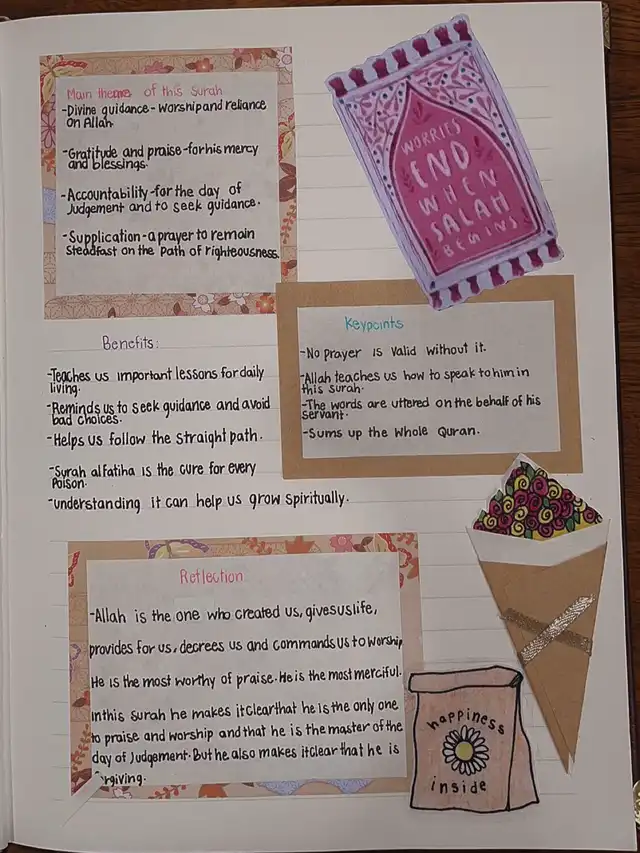 Main themes of this surah
-Divine guidance - worship and reliance
on Allah.
-Gratitude and praise - for his mercy
and blessings.
-Accountability - for the day of
Judgement and to seek guidance.
-Supplication - a prayer to remain
Steadfast on the Path of righteousness.
WORRIES
END
WHEN
SALAH
BEGINS
Keypoints
-No prayer is valid without it.
-Allah teaches us how to speak to him in
this surah.
-The words are uttered on the behalf of his
servant.
-Sums up the whole Quran.
Benefits:
-Teaches us important lessons for daily
living.
-Reminds us to seek guidance and avoid
bad choices.
-Helps us follow the straight path.
-Surah alfatiha is the cure for every
Poison.
-understanding it can help us grow spiritually.
Reflection
-Allah is the one who created us, gives us life,
provides for us, decrees us and commands us to worship
He is the most worthy of praise. He is the most merciful.
In this surah he makes it clear that he is the only one
to praise and worship and that he is the master of the
day of Judgement. But he also makes it clear that he is
forgiving.
happiness
inside